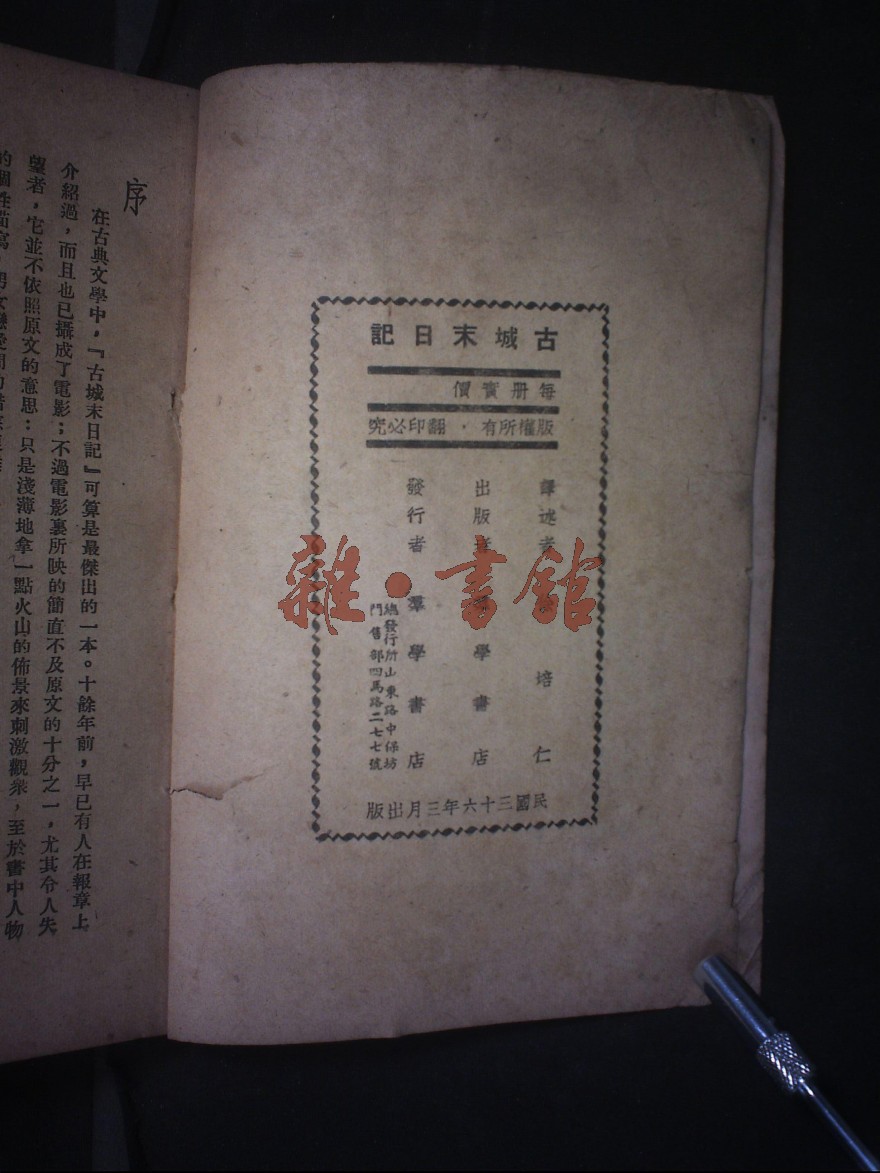 古城末日記
每册實價
版權所有．翻印必究
譯述者 培仁
出版者 羣學書店
發行者 羣學書店
總發行所山東路中保坊
門售部四馬路二七七號
民國三十六年三月出版
雜·書館
序
在古典文學中，「古城末日記」可算是最傑出的一本。十餘年前，早已有人在報章上
介紹過，而且也已攝成了電影；不過電影裏所映的簡直不及原文的十分之一，尤其令人失
望者，它並不依照原文的意思：只是淺薄地拿一點火山的佈景來刺激觀衆，至於書中人物
的個性描寫